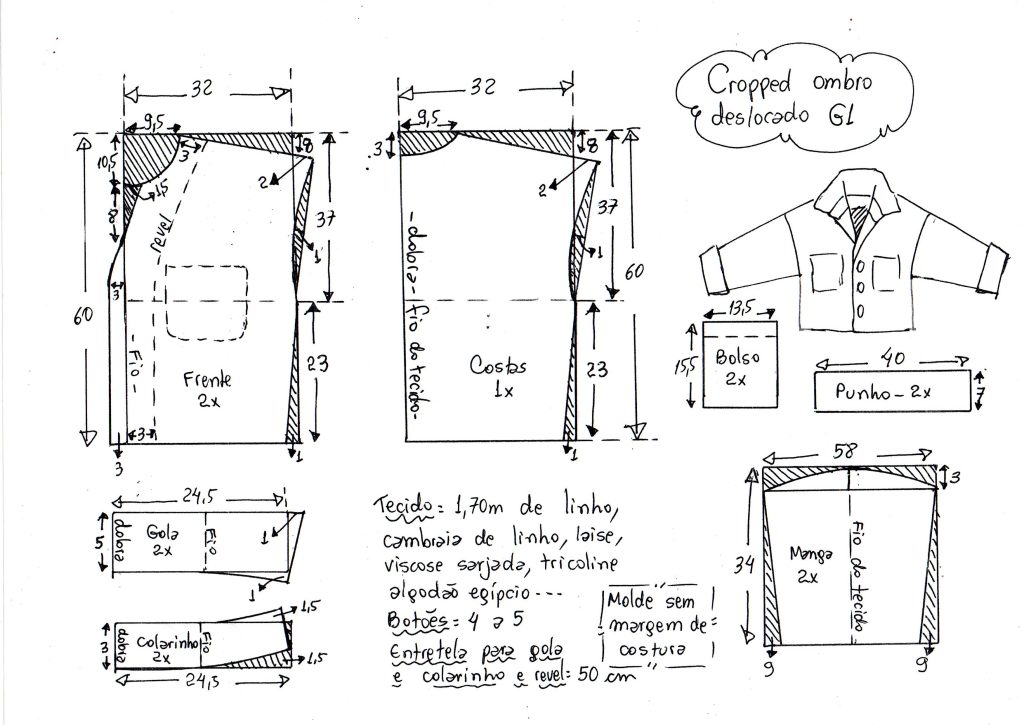 Cropped ombro
deslocado G1
32
9,5
10,5
3
8
1,5
8
2
revel
37
1
3
60
- Fio -
Frente
2x
23
3
3
1
32
9,5
3
8
2
37
1
60
- dobra - fio do tecido -
Costas
1x
23
1
13,5
15,5
Bolso
2x
40
Punho - 2x
7
58
3
34
Manga
2x
Fio do tecido
9
9
24,5
5
dobra
Gola
2x
Fio
1
1
1,5
3
dobra
Colarinho
2x
Fio
1,5
24,5
Tecido = 1,70m de linho,
cambraia de linho, laise,
viscose sarjada, tricoline
algodão egípcio ---
Botões = 4 a 5
Entretela para gola
e colarinho e revel = 50 cm
Molde sem
margem de
costura